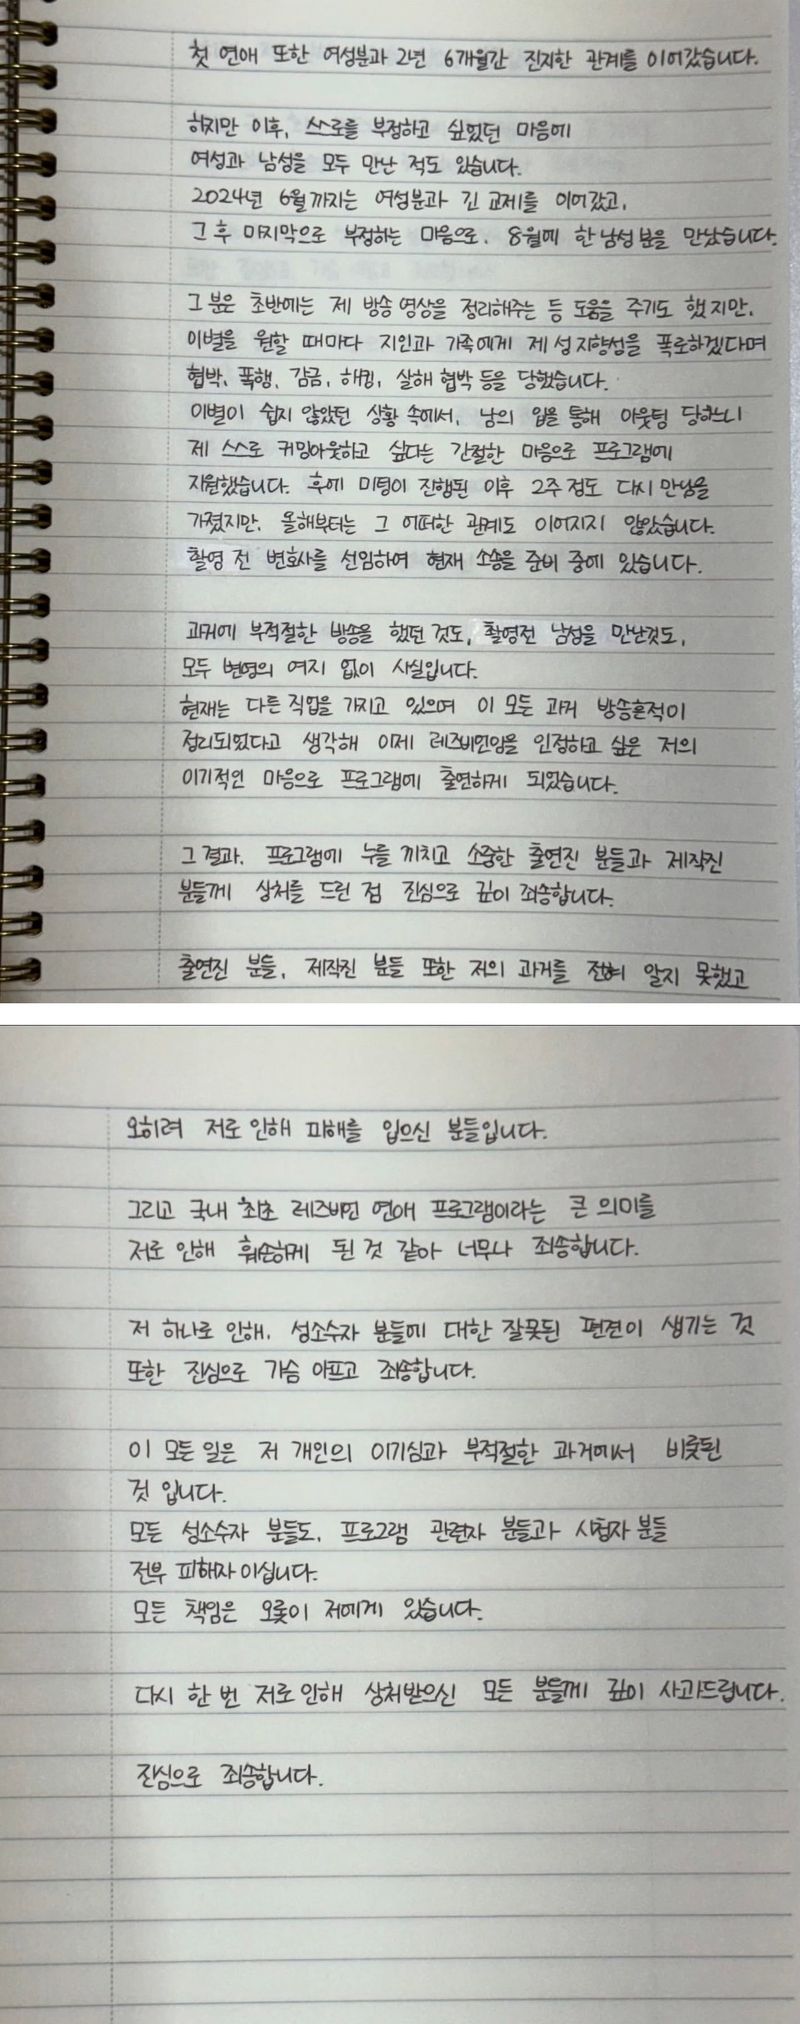 첫 연애 또한 여성분과 2년 6개월간 진지한 관계를 이어갔습니다.
하지만 이후, 스스로를 부정하고 싶었던 마음에
여성과 남성을 모두 만난 적도 있습니다.
2024년 6월까지는 여성분과 긴 교제를 이어갔고,
그 후 마지막으로 부정하는 마음으로, 8월에 한 남성분을 만났습니다.
그 분은 초반에는 제 방송 영상을 정리해주는 등 도움을 주기도 했지만,
이별을 원할 때마다 지인과 가족에게 제 성지향성을 폭로하겠다며
협박, 폭행, 감금, 해킹, 살해 협박 등을 당했습니다.
이별이 쉽지 않았던 상황 속에서, 남의 입을 통해 아웃팅 당하느니
제 스스로 커밍아웃하고 싶다는 간절한 마음으로 프로그램에
지원했습니다. 후에 미팅이 진행된 이후 2주 정도 다시 만남을
가졌지만, 올해부터는 그 어떠한 관계도 이어지지 않았습니다.
촬영 전 변호사를 선임하여 현재 소송을 준비 중에 있습니다.
과거에 부적절한 방송을 했던 것도, 촬영전 남성을 만난것도,
모두 변명의 여지 없이 사실입니다.
현재는 다른 직업을 가지고 있으며 이 모든 과거 방송흔적이
정리되었다고 생각해 이제 레즈비언임을 인정하고 싶은 저의
이기적인 마음으로 프로그램에 출연하게 되었습니다.
그 결과, 프로그램에 누를 끼치고 소중한 출연진 분들과 제작진
분들께 상처를 드린 점 진심으로 깊이 죄송합니다.
출연진 분들, 제작진 분들 또한 저의 과거를 전혀 알지 못했고
오히려 저로 인해 피해를 입으신 분들입니다.
그리고 국내 최초 레즈비언 연애 프로그램이라는 큰 의미를
저로 인해 훼손하게 된 것 같아 너무나 죄송합니다.
저 하나로 인해, 성소수자 분들에 대한 잘못된 편견이 생기는 것
또한 진심으로 가슴 아프고 죄송합니다.
이 모든 일은 저 개인의 이기심과 부적절한 과거에서 비롯된
것 입니다.
모든 성소수자 분들도, 프로그램 관련자 분들과 시청자 분들
전부 피해자 이십니다.
모든 책임은 오롯이 저에게 있습니다.
다시 한 번 저로 인해 상처받으신 모든 분들께 깊이 사과드립니다.
진심으로 죄송합니다.